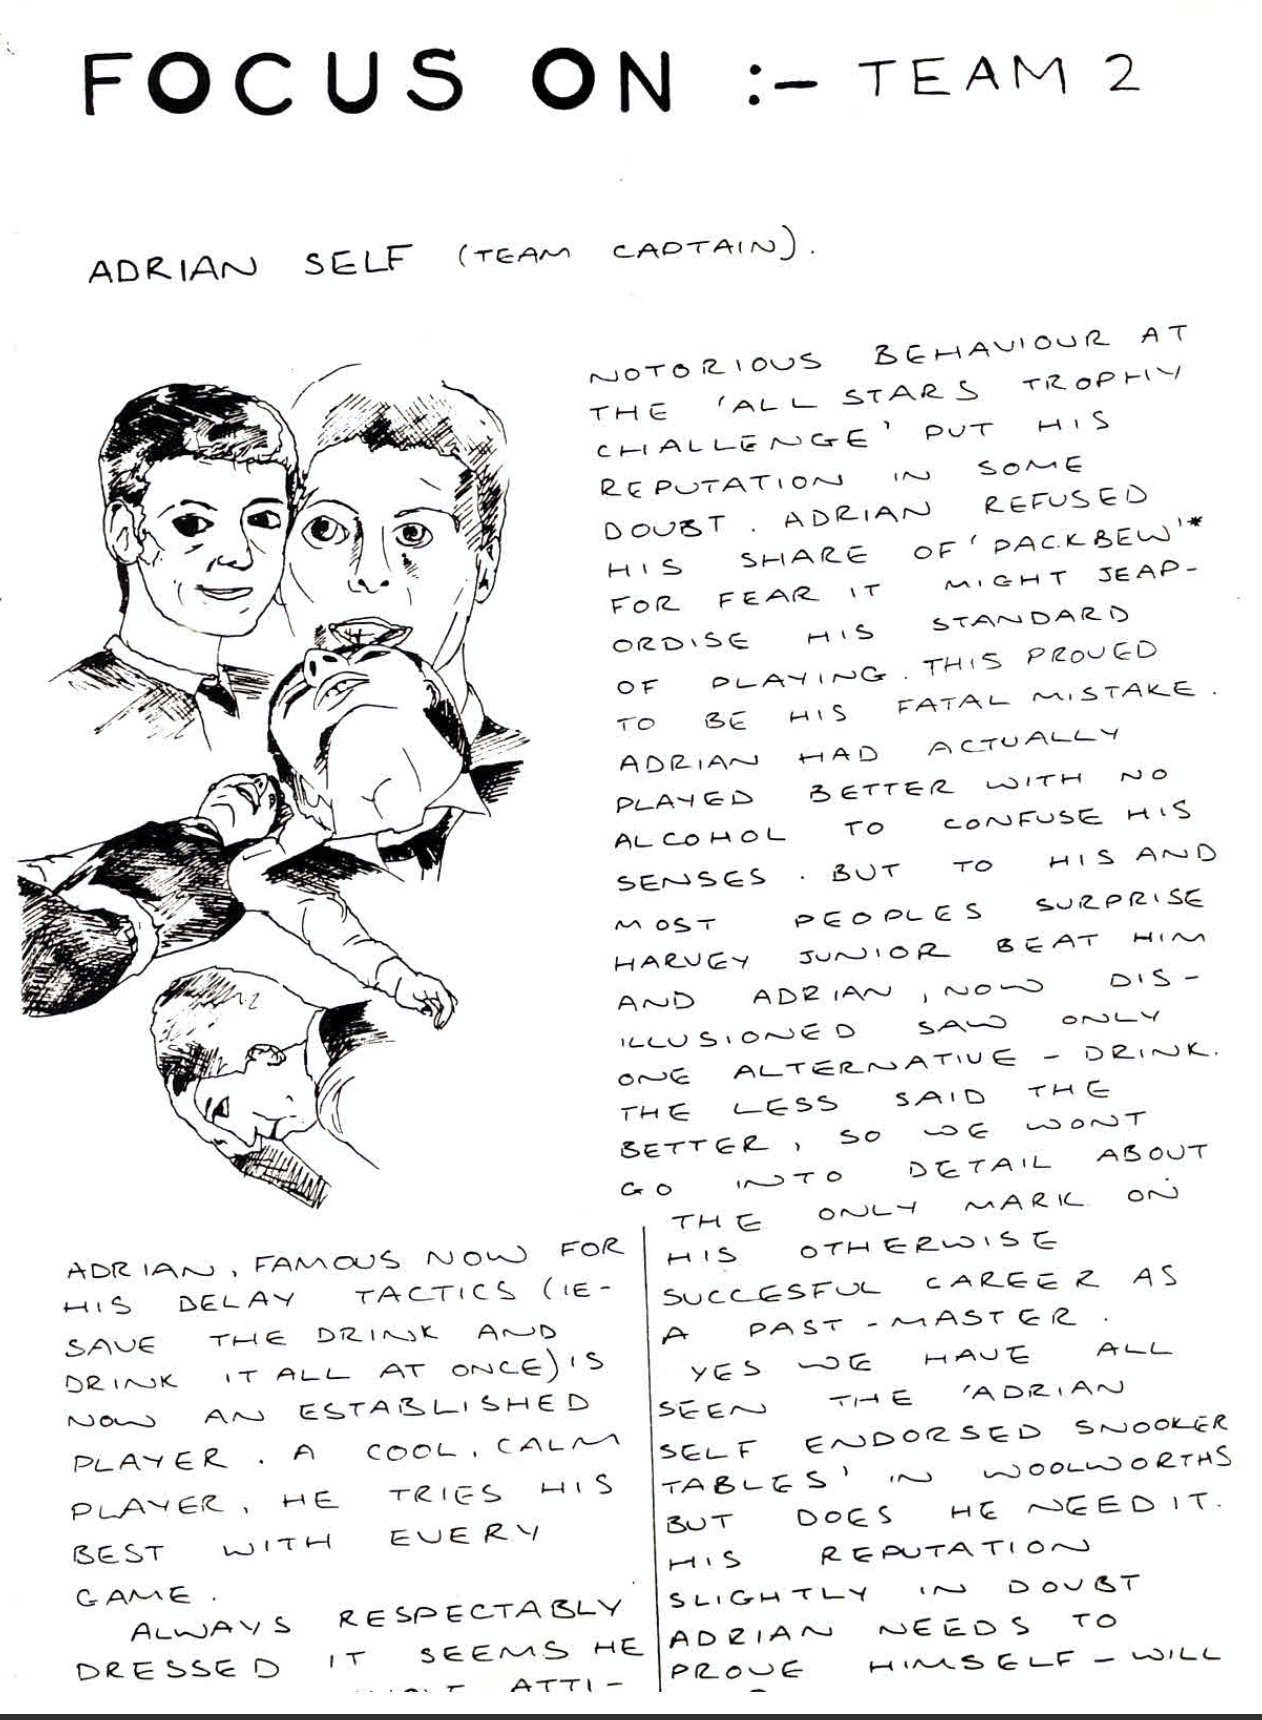 FOCUS ON :- TEAM 2
ADRIAN SELF (TEAM CAPTAIN).
ADRIAN, FAMOUS NOW FOR
HIS DELAY TACTICS (IE-
SAVE THE DRINK AND
DRINK IT ALL AT ONCE) IS
NOW AN ESTABLISHED
PLAYER. A COOL, CALM
PLAYER, HE TRIES HIS
BEST WITH EVERY
GAME.
ALWAYS RESPECTABLY
DRESSED IT SEEMS HE
ATTI-
NOTORIOUS BEHAVIOUR AT
THE 'ALL STARS TROPHY
CHALLENGE' PUT HIS
REPUTATION IN SOME
DOUBT. ADRIAN REFUSED
HIS SHARE OF 'PACKBEW'*
FOR FEAR IT MIGHT JEAP-
ORDISE HIS STANDARD
OF PLAYING. THIS PROVED
TO BE HIS FATAL MISTAKE.
ADRIAN HAD ACTUALLY
PLAYED BETTER WITH NO
ALCOHOL TO CONFUSE HIS
SENSES. BUT TO HIS AND
MOST PEOPLES SURPRISE
HARVEY JUNIOR BEAT HIM
AND ADRIAN, NOW DIS-
ILLUSIONED SAW ONLY
ONE ALTERNATIVE - DRINK.
THE LESS SAID THE
BETTER, SO WE WONT
GO INTO DETAIL ABOUT
THE ONLY MARK ON
HIS OTHERWISE
SUCCESFUL CAREER AS
A PAST-MASTER.
YES WE HAVE ALL
SEEN THE 'ADRIAN
SELF ENDORSED SNOOKER
TABLES' IN WOOLWORTHS
BUT DOES HE NEED IT.
HIS REPUTATION
SLIGHTLY IN DOUBT
ADRIAN NEEDS TO
PROVE HIMSELF - WILL